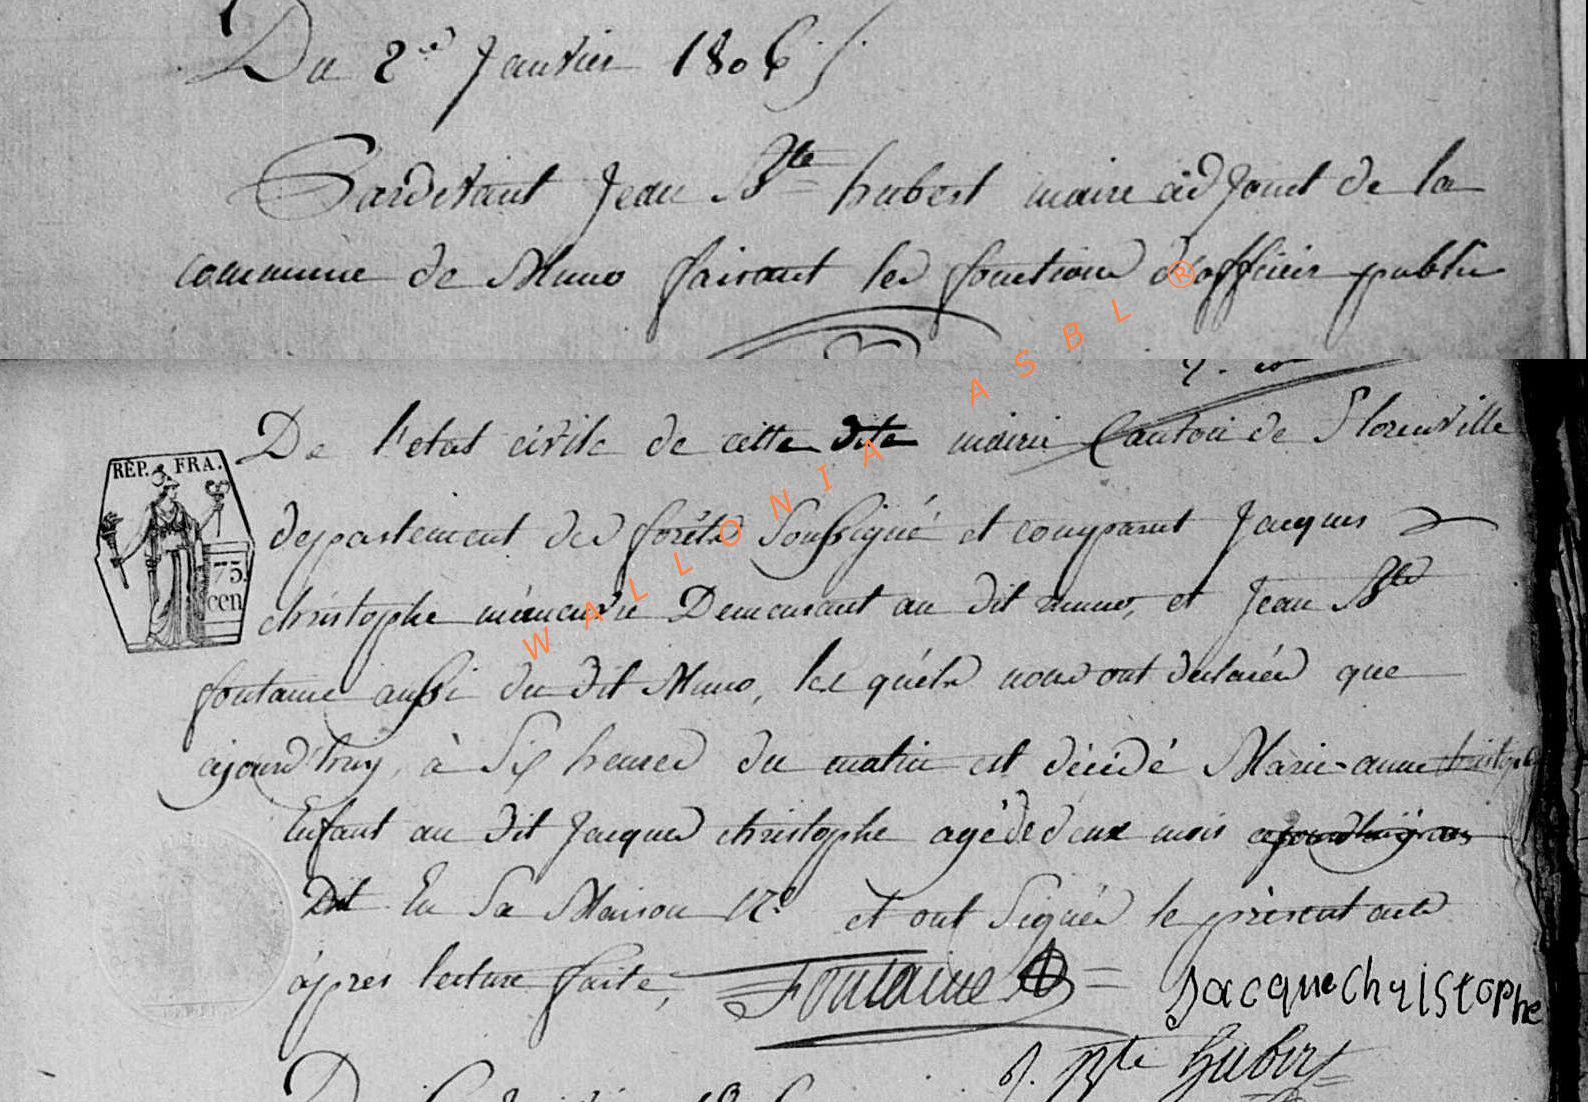 Du 2e Janvier 1806
Pardevant Jean Bte hubert maire adjoint de la
commune de Muno faisant les fonctions d'officier public
De l'etat civile de cette dite mairie Canton de Florenville
REP. FRA.
75
cen
departement des forêts Soussigné et comparut Jacques
christophe Demeurant au dit muno, et Jean Bte
fontaine aussi du dit Muno, les quéls nous ont declarés que
ajourd'huy, à Six heures du matin est décédé Marie-anne christophe
Enfant au dit Jacques christophe agé de deux mois
Dit En Sa Maison et ont Signés le présent acte
áprés lecture faite,
Fontaine
Jacque christophe
J. Bte Hubert
WALLONIA ASBL ®